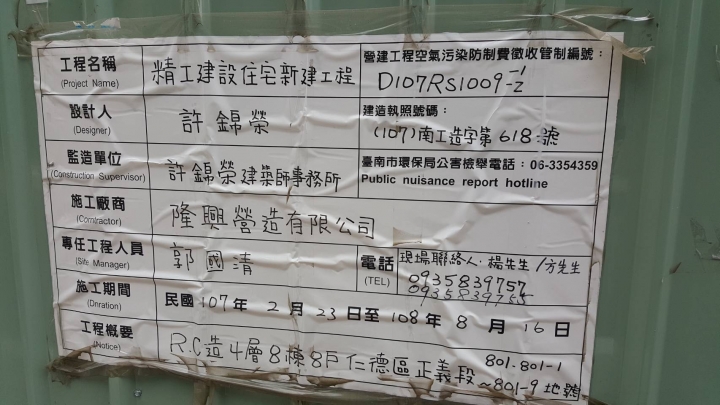 工程名稱
(Project Name)
精工建設住宅新建工程
營建工程空氣污染防制費徵收管制編號：
D107RS1009-1/2
設計人
(Designer)
許錦榮
建造執照號碼：
(107)南工造字第618號
監造單位
(Construction Supervisor)
許錦榮建築師事務所
臺南市環保局公害檢舉電話：06-3354359
Public nuisance report hotline
施工廠商
(Contractor)
隆興營造有限公司
專任工程人員
(Site Manager)
郭國清
電話
(TEL)
現場聯絡人．楊先生/方先生
0935839757
0935839755
施工期間
(Dnration)
民國107年2月23日至108年8月16日
工程概要
(Notice)
R.C造4層8棟8戶仁德區正義段
801.801-1
~801-9地號